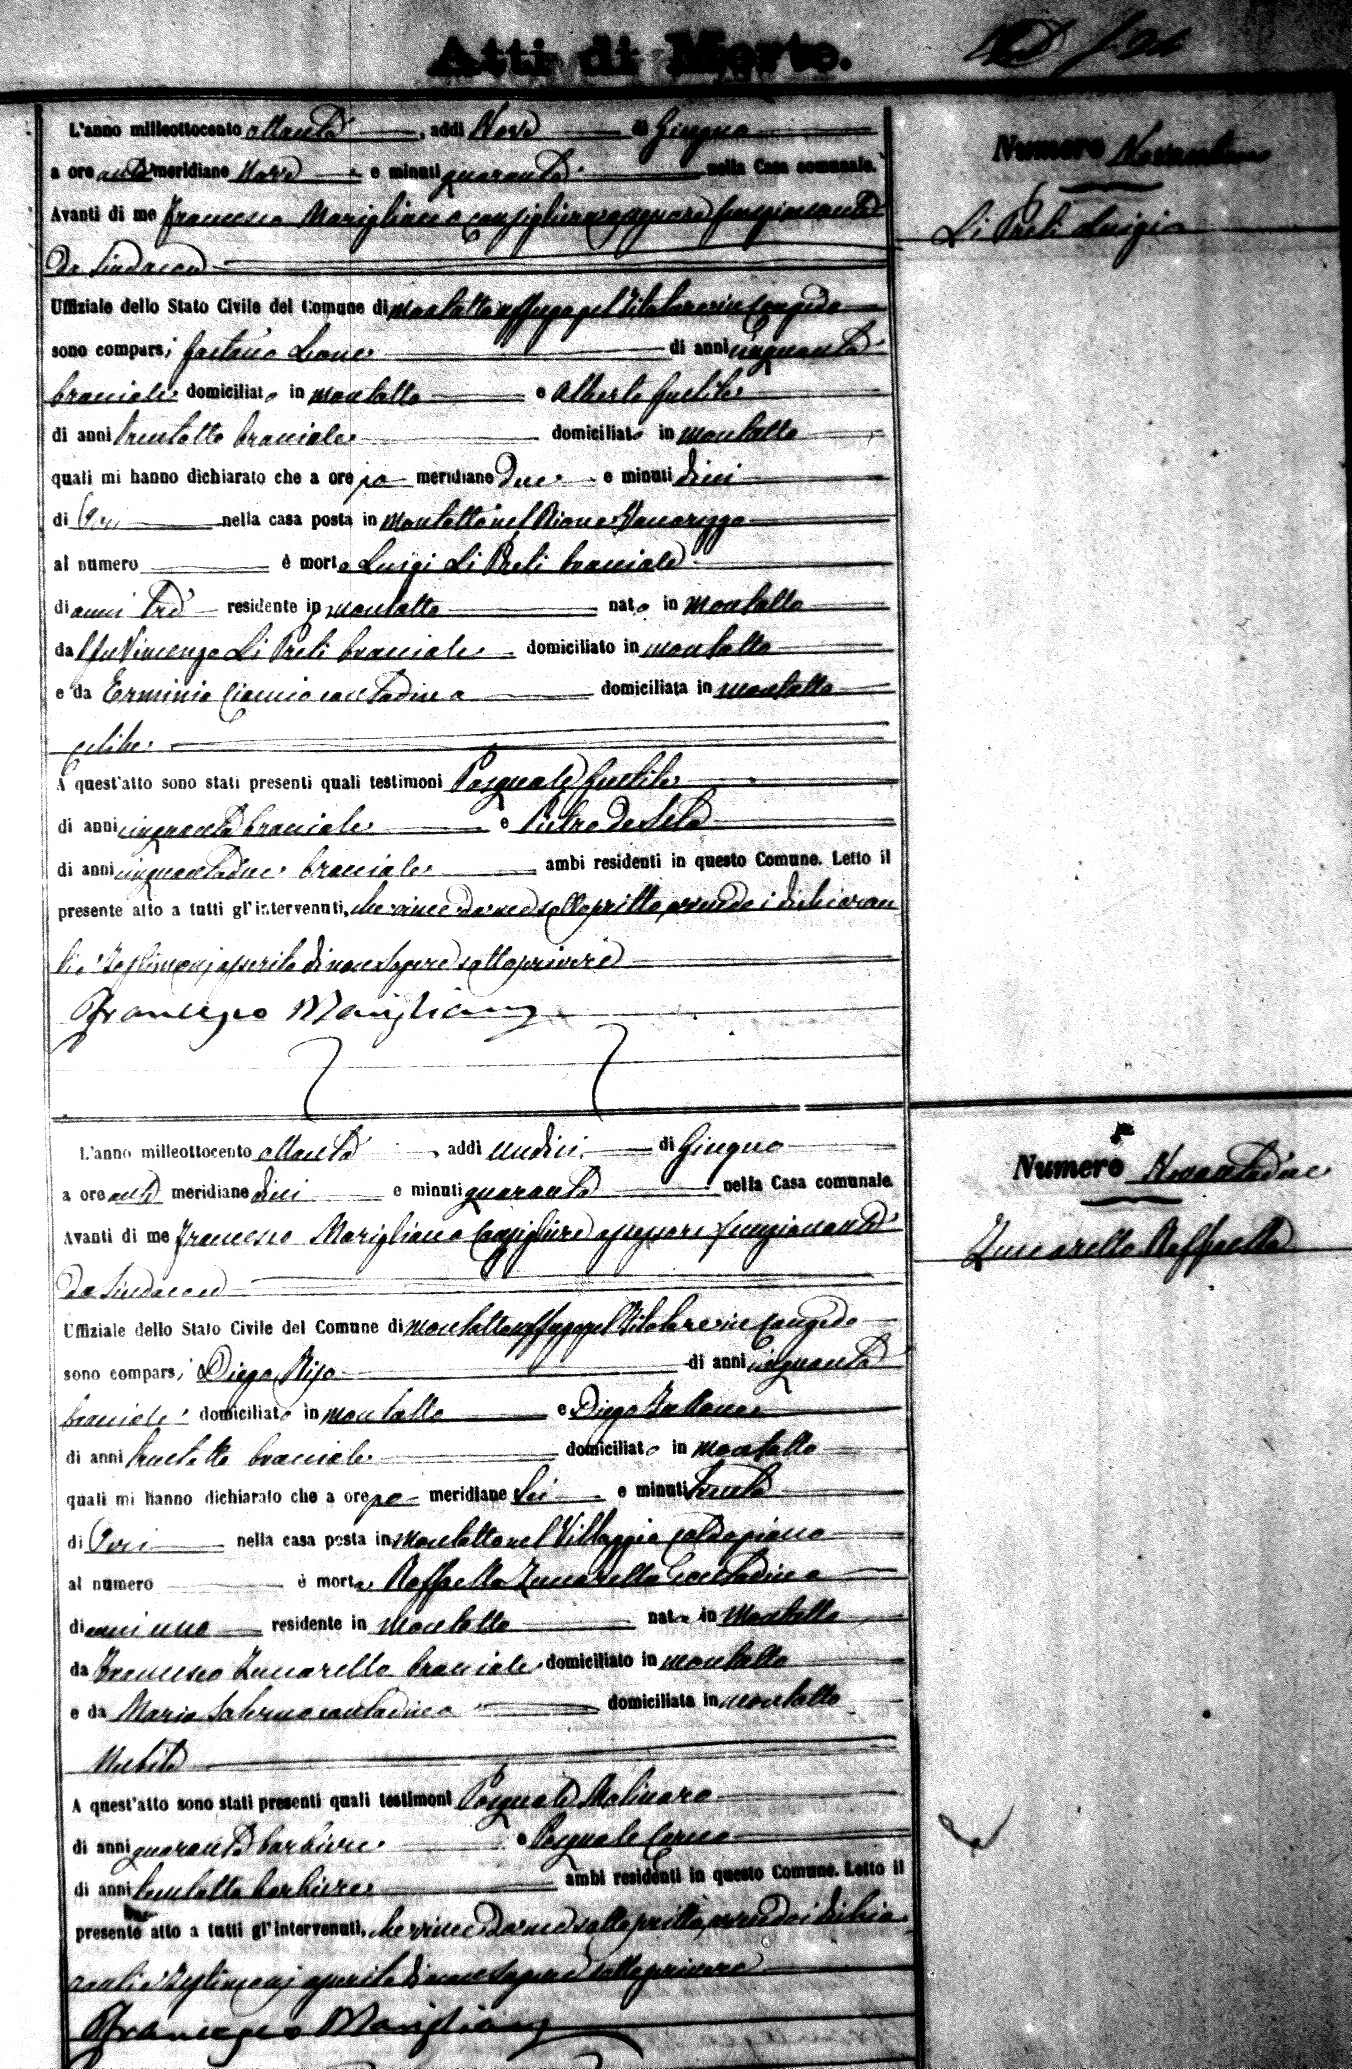 Atti di Morte.
L'anno milleottocento ottanta, addì Nove di Giugno
a ore anti meridiane Nove e minuti quaranta nella Casa comunale.
Avanti di me Francesco Marigliano Consigliere assessore funzionante
da Sindaco
Uffiziale dello Stato Civile del Comune di Montalto Uffugo pel Titolare in Congedo
sono comparsi Leone di anni cinquanta
bracciale domiciliato in Montalto e Alberto
di anni trentotto bracciale domiciliato in Montalto
quali mi hanno dichiarato che a ore po meridiane due e minuti dieci
di nella casa posta in Montalto nel Rione
al numero è morto Luigi Li Preti bracciale
di anni tre residente in Montalto nato in Montalto
da fu Vincenzo Li Preti bracciale domiciliato in Montalto
e da Erminia contadina domiciliata in Montalto
celibe
A quest'atto sono stati presenti quali testimoni Pasquale
di anni cinquanta bracciale e Pietro de Seta
di anni cinquantadue bracciale ambi residenti in questo Comune. Letto il
presente atto a tutti gl'intervenuti, che viene da me sottoscritto, avendo i dichiaran
ti e testimonj asserito di non sapere sottoscrivere
Francesco Marigliano
Numero Novantuno
Li Preti Luigi
L'anno milleottocento ottanta, addì undici di Giugno
a ore anti meridiane dieci e minuti quaranta nella Casa comunale.
Avanti di me Francesco Marigliano Consigliere assessore funzionante
da Sindaco
Uffiziale dello Stato Civile del Comune di Montalto Uffugo pel Titolare in Congedo
sono comparsi Diego di anni cinquanta
bracciale domiciliato in Montalto e Diego
di anni trentotto bracciale domiciliato in Montalto
quali mi hanno dichiarato che a ore po meridiane sei e minuti trenta
di Ieri nella casa posta in Montalto nel Villaggio Caldopiano
al numero è morta Raffaella Zuccarello Contadina
di anni uno residente in Montalto nata in Montalto
da Francesco Zuccarello bracciale domiciliato in Montalto
e da Maria Salerno contadina domiciliata in Montalto
Nubile
A quest'atto sono stati presenti quali testimoni Pasquale Molinaro
di anni quaranta barbiere e Pasquale
di anni trentotto barbiere ambi residenti in questo Comune. Letto il
presente atto a tutti gl'intervenuti, che viene da me sottoscritto, avendo i dichia
ranti e testimonj asserito di non sapere sottoscrivere
Francesco Marigliano
Numero Novantadue
Zuccarello Raffaella